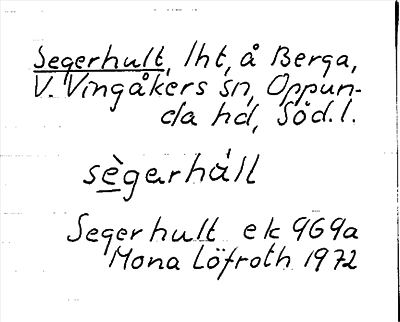 Segerhult, lht, å Berga,
V. Vingåkers sn, Oppun-
da hd, Söd.l.
sègerhu̇ll
Segerhult ek 969a
Mona Löfroth 1972